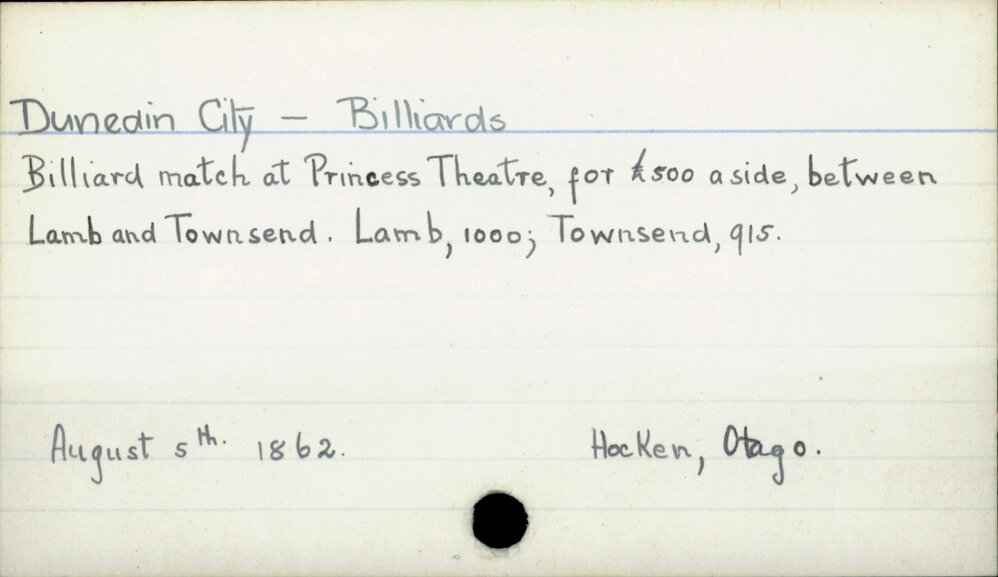 Dunedin City — Billiards
Billiard match at Princess Theatre, for £500 a side, between
Lamb and Townsend. Lamb, 1000; Townsend, 915.
August 5th. 1862.
Hocken, Otago.